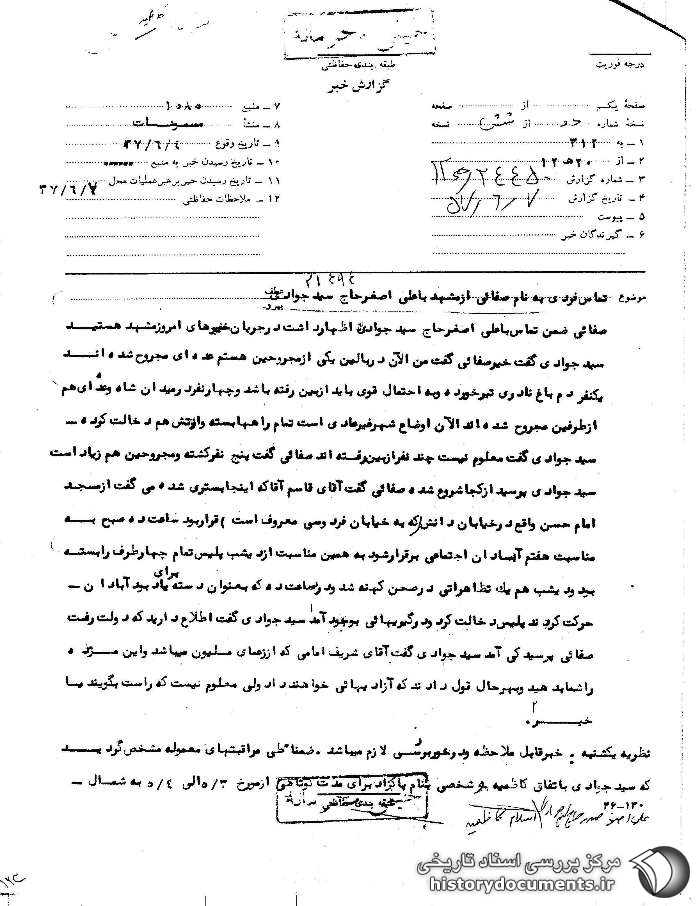 خیلی محرمانه
درجه فوریت
طبقه بندی حفاظتی
گزارش خبر
صفحهٔ یکم از صفحه
نسخهٔ شماره دو از شش نسخه
۱ – به ۳۱۲
۲ – از ۲۰ هـ ۱۲
۳ – شمارهٔ گزارش
۴ – تاریخ گزارش
۵ – پیوست
۶ – گیرندگان خبر
۷ – منبع ۱۰۸۵
۸ – منشأ مسموعات
۹ – تاریخ وقوع ۳۷/۶/۴
۱۰ – تاریخ رسیدن خبر به منبع
۱۱ – تاریخ رسیدن خبر به رهبر عملیات محل ۳۷/۶/۷
۱۲ – ملاحظات حفاظتی
موضوع تماس فردی به نام صفائی از مشهد باعلی اصغر حاج سید جوادی
صفائی ضمن تماس باعلی اصغر حاج سید جوادی اظهار داشت در جریان خبرهای امروز مشهد هستید
سید جوادی گفت خیر صفائی گفت من الآن در بالین یکی از مجروحین هستم عده ای مجروح شده اند
یکنفر دم باغ نادری تیر خورده و به احتمال قوی باید از بین رفته باشد و چهار نفر در میدان شاه و عده ای هم
از طرفین مجروح شده اند الآن اوضاع شهر غیر عادی است تمام راهها بسته و ارتش هم دخالت کرده –
سید جوادی گفت معلوم نیست چند نفر از بین رفته اند صفائی گفت پنج نفر کشته و مجروحین هم زیاد است
سید جوادی پرسید از کجا شروع شده صفائی گفت آقای قاسم آقا که اینجا بستری شده می گفت از مسجد
امام حسن واقع در خیابان دانش (که به خیابان فردوسی معروف است) قرار بود ساعت ده صبح به
مناسبت هفتم آبادان اجتماعی برقرار شود به همین مناسبت از دیشب پلیس تمام چهار طرف را بسته
بود دیشب هم یک تظاهراتی در صحن کهنه شد و در ساعت ده که بعنوان دسته برای یاد بود آبادان –
حرکت کردند پلیس دخالت کرد و درگیریهائی بوجود آمد سید جوادی گفت اطلاع دارید که دولت رفت
صفائی پرسید کی آمد سید جوادی گفت آقای شریف امامی که از زعمای ملیون میباشد و این مژده
را شما بدهید و بهر حال قول دادند که آزادیهائی خواهند داد ولی معلوم نیست که راست بگویند یا
خیر.
نظریه یکشنبه خبر قابل ملاحظه و در خور بررسی لازم میباشد. ضمنا طی مراقبتهای معموله مشخص گردید
که سید جوادی باتفاق کاظمیه و شخصی بنام پاکزاد برای مدت کوتاهی از مورخ ۵/۳ الی ۵/۴ به شمال –
طبقه بندی حفاظتی
۳۶-۱۳۰
مرکز بررسی اسناد تاریخی
historydocuments.ir